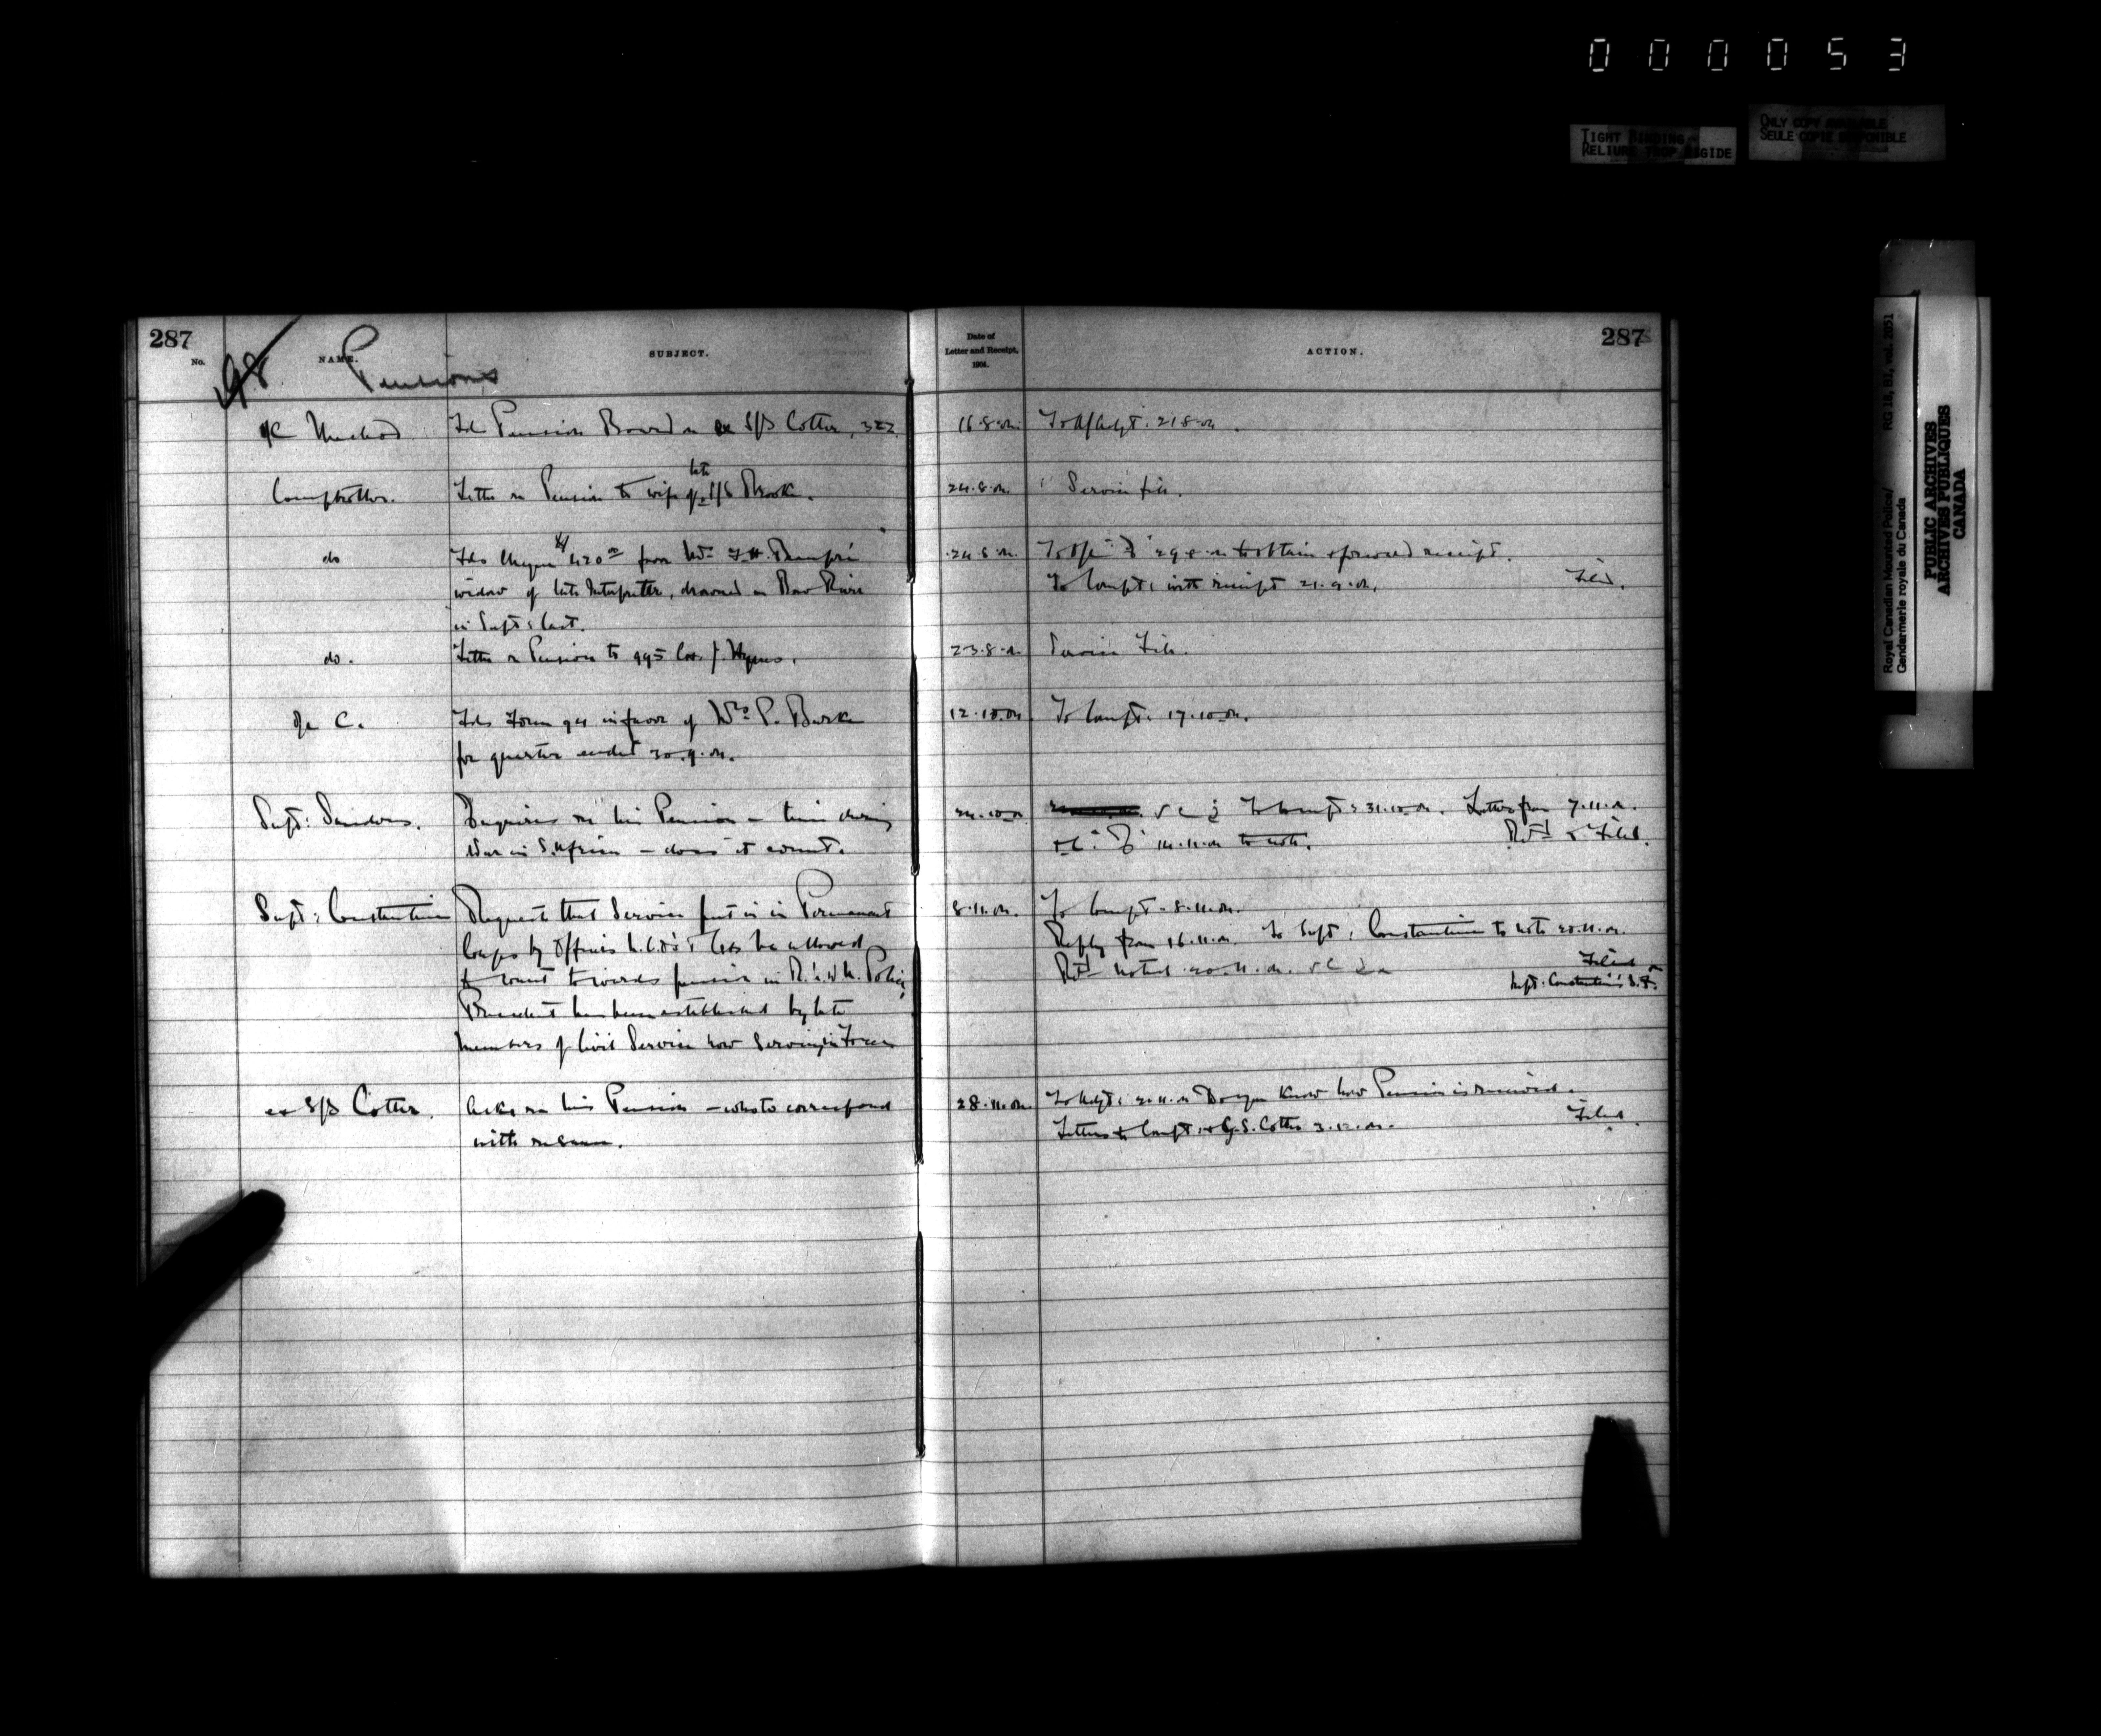 0 0 0 0 5 3
TIGHT BINDING
RELIURE TROP RIGIDE
ONLY COPY AVAILABLE
SEULE COPIE DISPONIBLE
Royal Canadian Mounted Police/
Gendarmerie royale du Canada
RG 18, B1, vol. 2051
PUBLIC ARCHIVES
ARCHIVES PUBLIQUES
CANADA
287
No.
NAME.
SUBJECT.
98 Pensions
Date of
Letter and Receipt,
1904.
ACTION.
287
Pension Board on S/S Cotter, 322
16.8.04
21.8.04
Comptroller.
Letter re Pension to wife of late S/S Brooke.
24.8.04.
" Service file.
do
widow of late Interpreter, drowned in Bow River
in Sept: last.
24.8.04.
to obtain & forward receipt.
To Compt: with receipt 21.9.04.
Filed.
do.
Letter re Pension to 995 Cor. J. Hynes.
23.8.04
Service File.
"C.
Fds Form 94 in favor of Mrs P. Burke
for quarter ended 30.9.04.
12.10.04
To Compt. 17.10.04.
Supt: Sanders.
Enquires re his Pension – time during
War in S. Africa – does it count.
24.10.04
To Compt: 31.10.04. Letter from 7.11.04.
14.11.04 to note. Retd & Filed.
Supt: Constantine
Request that Service put in in Permanent
Corps by Officers N.C.O's & Cons be allowed
to count towards pension in R.N.W.M. Police
Precedent has been established by late
members of Civil Service now serving in Force
8.11.04.
To Compt. 8.11.04.
Reply from 16.11.04. To Supt: Constantine to note 20.11.04.
Retd noted 20.11.04.
Filed
Supt. Constantine's S.F.
ex S/S Cotter.
Asks re his Pension – who to correspond
with re same.
28.11.04
Do you know how Pension is received.
Letters to Compt: & G.S. Cotter 3.12.04.
Filed.